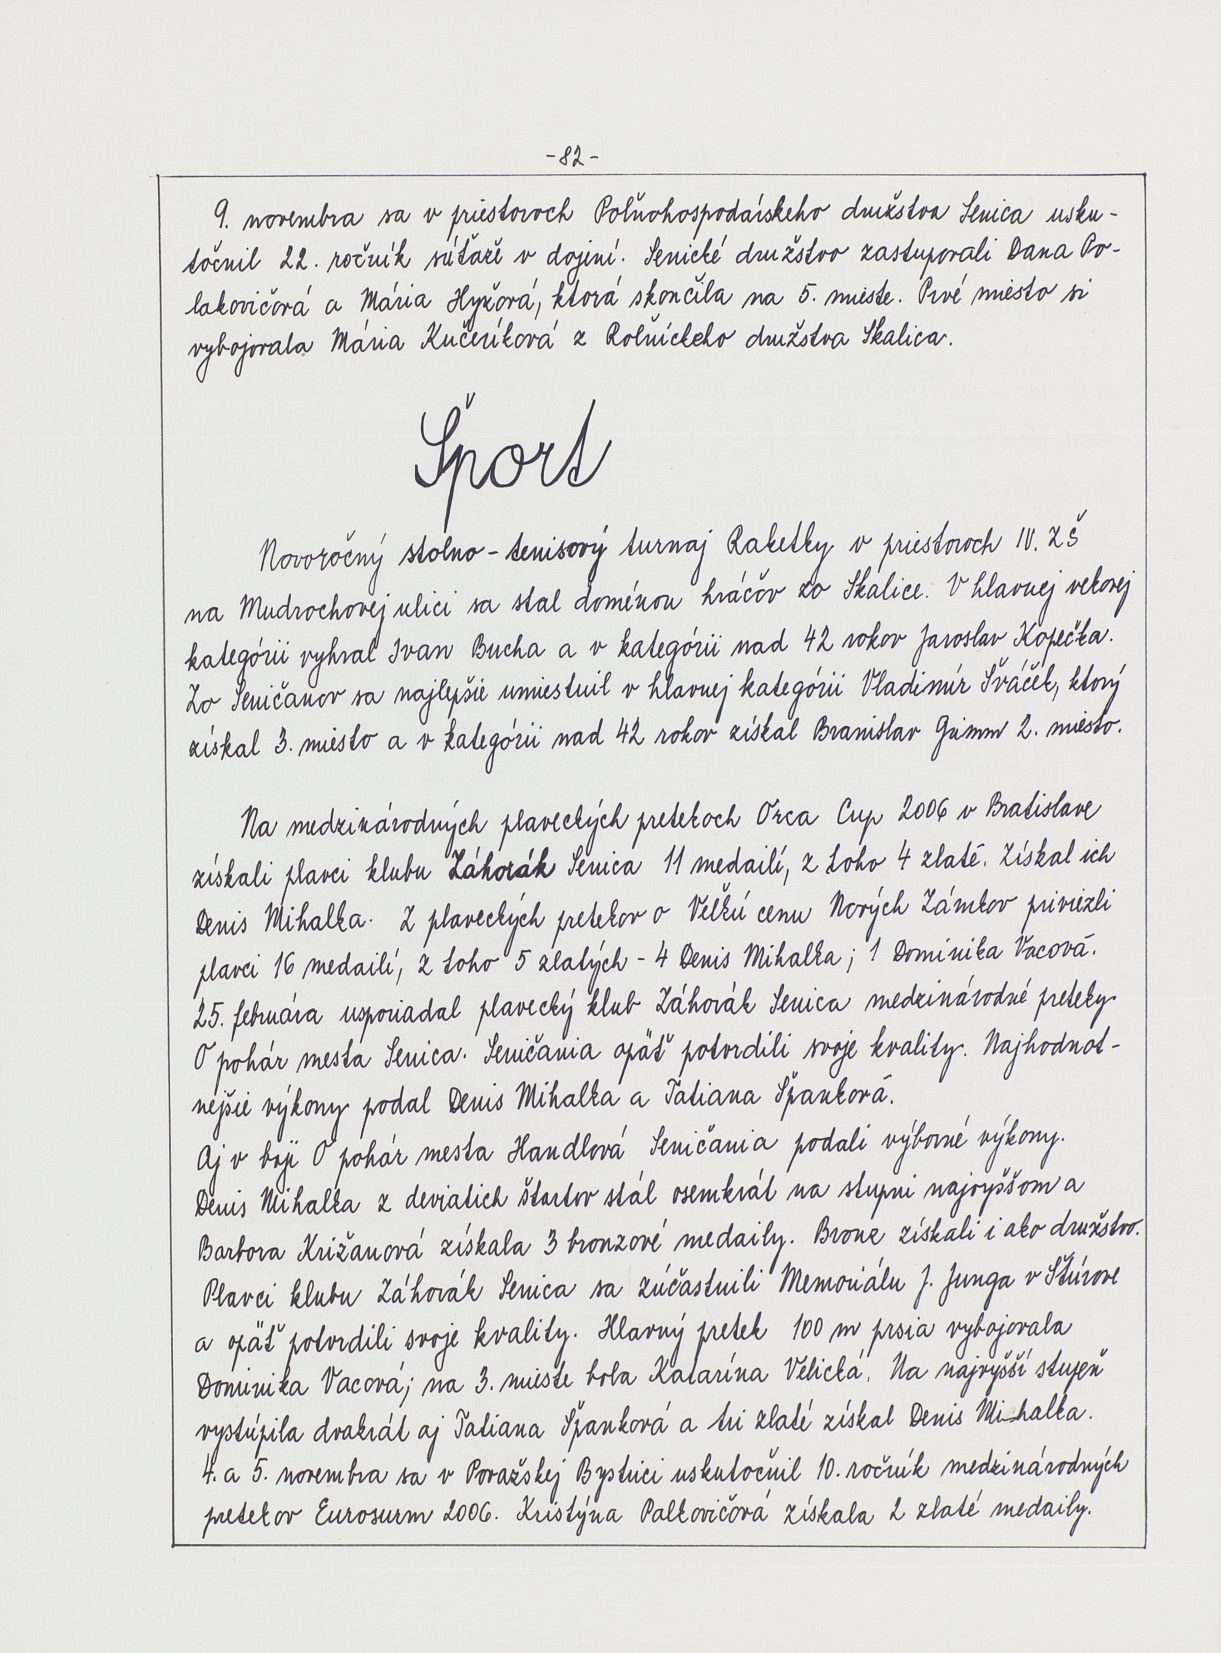 -82-
9. novembra sa v priestoroch Poľnohospodárskeho družstva Senica usku-
točnil 22. ročník súťaže v dojení. Senické družstvo zastupovali Dana Po-
lakovičová a Mária Hyžová, ktorá skončila na 5. mieste. Prvé miesto si
vybojovala Mária Kučeríková z Roľníckeho družstva Skalica.
Šport
Novoročný stolno-tenisový turnaj Raketky v priestoroch IV. ZŠ
na Mudrochovej ulici sa stal doménou hráčov zo Skalice. V hlavnej vekovej
kategórii vyhral Ivan Bucha a v kategórii nad 42 rokov Jaroslav Kopečka.
Zo Seničanov sa najlepšie umiestnil v hlavnej kategórii Vladimír Šváček, ktorý
získal 3. miesto a v kategórii nad 42 rokov získal Branislav Grimm 2. miesto.
Na medzinárodných plaveckých pretekoch Orca Cup 2006 v Bratislave
získali plavci klubu Záhorák Senica 11 medailí, z toho 4 zlaté. Získal ich
Denis Mihalka. Z plaveckých pretekov o Veľkú cenu Nových Zámkov priviezli
plavci 16 medailí, z toho 5 zlatých - 4 Denis Mihalka; 1 Dominika Vacová.
25. februára usporiadal plavecký klub Záhorák Senica medzinárodné preteky
O pohár mesta Senica. Seničania opäť potvrdili svoje kvality. Najhodnot-
nejšie výkony podal Denis Mihalka a Tatiana Španková.
Aj v boji O pohár mesta Handlová Seničania podali výborné výkony.
Denis Mihalka z deviatich štartov stál osemkrát na stupni najvyššom a
Barbora Križanová získala 3 bronzové medaily. Bronz získali i ako družstvo.
Plavci klubu Záhorák Senica sa zúčastnili Memoriálu J. Junga v Štúrove
a opäť potvrdili svoje kvality. Hlavný pretek 100 m prsia vybojovala
Dominika Vacová; na 3. mieste bola Katarína Velická. Na najvyšší stupeň
vystúpila dvakrát aj Tatiana Španková a tri zlaté získal Denis Mihalka.
4. a 5. novembra sa v Považskej Bystrici uskutočnil 10. ročník medzinárodných
pretekov Eurosurm 2006. Kristýna Palkovičová získala 2 zlaté medaily.